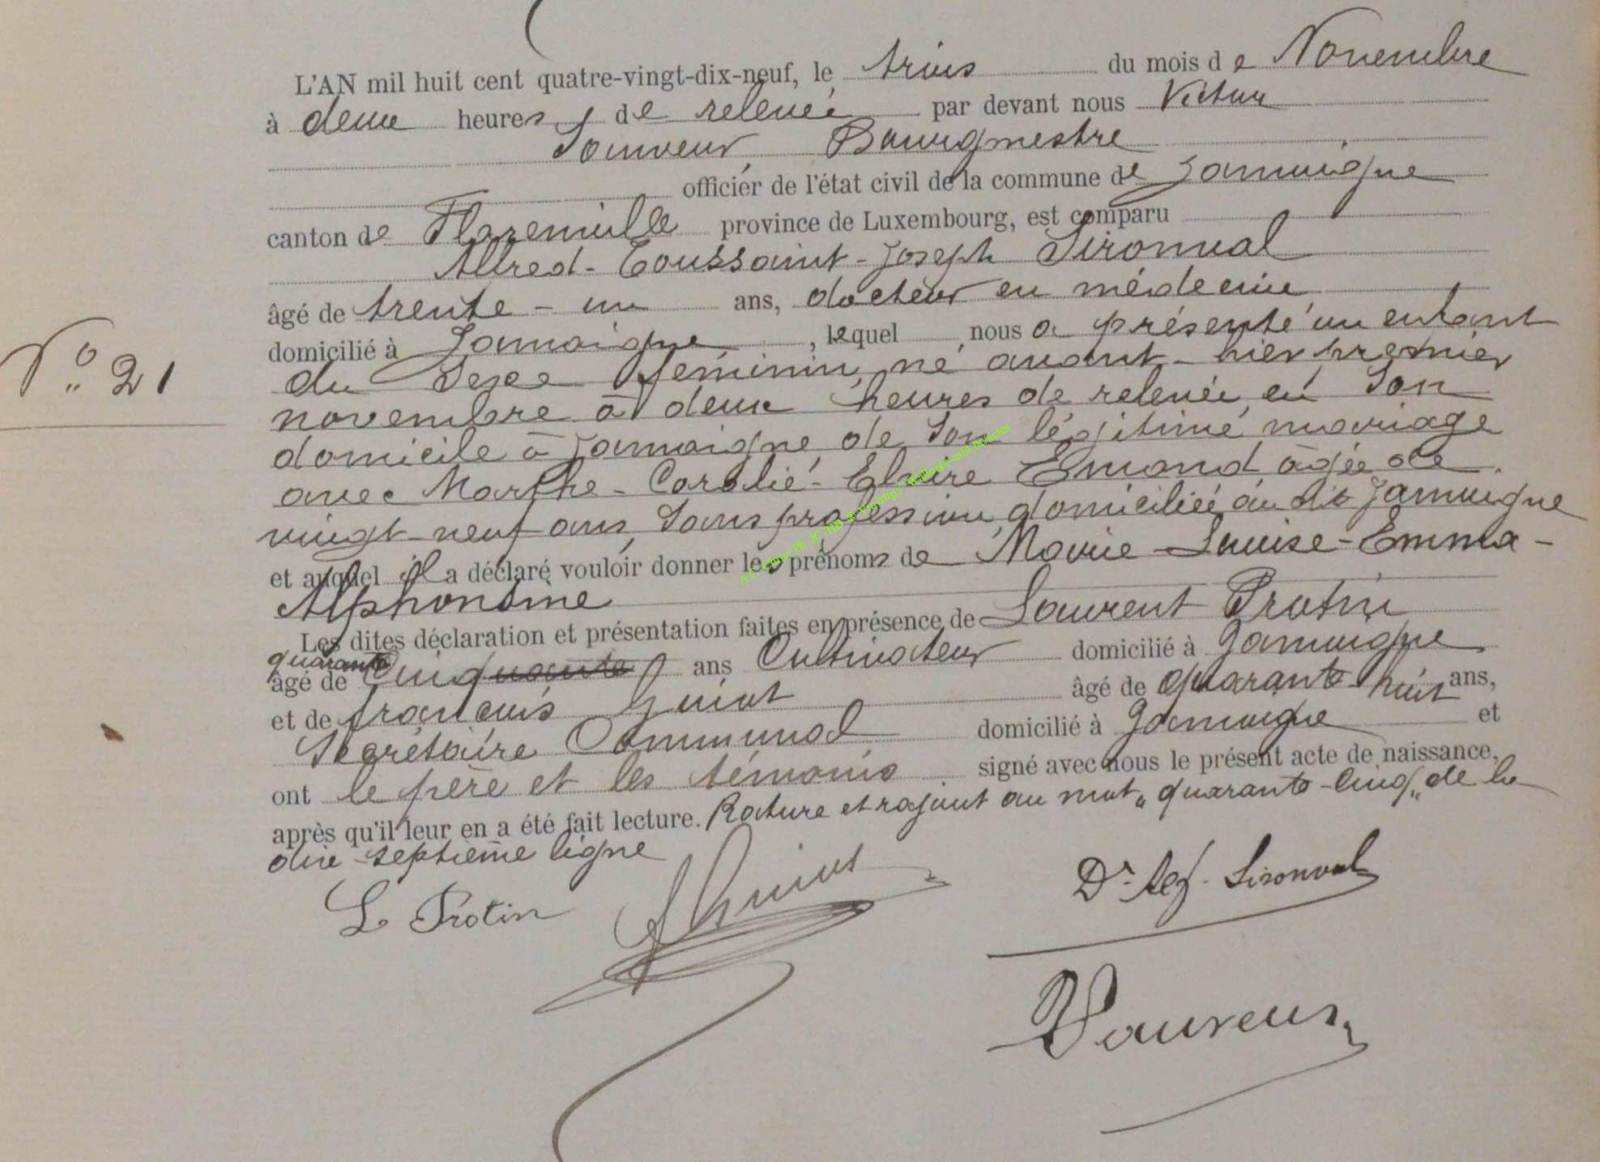 L'AN mil huit cent quatre-vingt-dix-neuf, le trois du mois de Novembre
à deux heures de relevée par devant nous Victor
Sauveur, Bourgmestre
officier de l'état civil de la commune de Jamoigne
canton de Florenville province de Luxembourg, est comparu
Alfred-Toussaint-Joseph Sironval
âgé de trente-un ans, docteur en médecine
domicilié à Jamoigne, lequel nous a présenté un enfant
du Sexe féminin, né avant-hier premier
novembre à deux heures de relevée en Son
domicile à Jamoigne de Son légitime mariage
avec Marthe-Coralie-Elvire Emond, âgée de
vingt-neuf ans, Sans profession domiciliée au dit Jamoigne
et auquel il a déclaré vouloir donner les prénoms de Marie-Louise-Emma-
Alphonsine
Les dites déclaration et présentation faites en présence de Laurent Protin
quarante
âgé de Cinquante ans Cultivateur domicilié à Jamoigne
et de françois Guiot âgé de quarante huit ans,
Secrétaire Communal domicilié à Jamoigne et
ont le père et les témoins signé avec nous le présent acte de naissance,
après qu'il leur en a été fait lecture. Rature et rajout au mot „quarante-Cinq„ de la
dix-septième ligne
L Protin
Guiot
Dr Sironval
VSauveur
N° 21